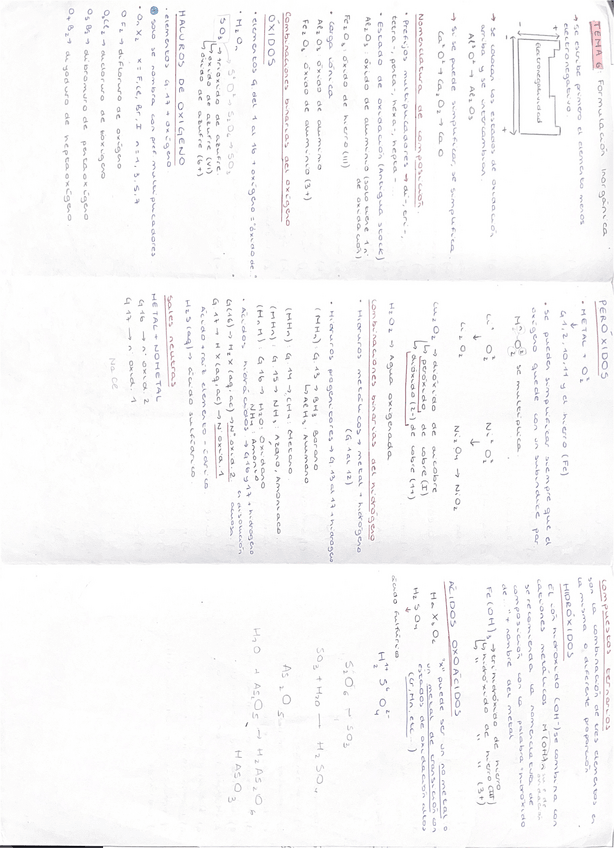 TEMA 6 Formulación inorgánica
→ se escribe primero el elemento menos
electronegativo
Electronegatividad
→ se colocan los estados de oxidación
arriba y se intercambian.
→ si se puede simplificar, se simplifica.
Nomenclatura de composición.
• Prefijos multiplicadores → di-, tri-,
tetra-, penta-, hexa-, hepta-
• Estado de oxidación (Antigua stock)
Al₂O₃: óxido de aluminio (solo tiene 1 nº
de oxidación)
Fe₂O₃: óxido de hierro (III)
• Carga iónica
Al₂O₃ óxido de aluminio
Fe₂O₃ óxido de aluminio (3+)
Combinaciones binarias del oxígeno
ÓXIDOS
• elementos G del 1 al 16 + oxígeno = "óxido de"
SO₃ → trióxido de azufre
óxido de azufre (VI)
óxido de azufre (6+)
HALUROS DE OXÍGENO
• elementos G 17 + oxígeno
• OₙX₂ X = F, Cl, Br, I n = 1, 3, 5, 7
solo se nombra con pre multiplicadores
OF₂ → difluoruro de oxígeno
O₃Cl₂ → dicloruro de trioxígeno
O₅Br₂ → dibromuro de pentaoxígeno
O₇I₂ → diyoduro de heptaoxígeno
PERÓXIDOS
• METAL + O₂²⁻
G 1, 2, 10, 11 y el hierro (Fe)
• se pueden simplificar siempre que el
oxígeno quede con un subíndice par
se multiplica
Li₂O₂
Ni₂O₄ → NiO₂
Cu₂O₂ → dióxido de dicobre
peróxido de cobre (I)
dióxido (2-) de cobre (1+)
H₂O₂ → Agua oxigenada
Combinaciones binarias del hidrógeno
• Hidruros metálicos → metal + hidrógeno
(G 1 al 12)
• Hidruros progenitores → G 13 al 17 + hidrógeno
(MH₃) G 13 → BH₃ Borano
AlH₃: Alumano
(MH₄) G 14 → CH₄ Metano
(MH₃) G 15 → NH₃ Azano, Amoniaco
(H₂M) G 16 → H₂O: Oxidano
• Ácidos hidrácidos → G 16 y 17 + hidrógeno
en disolución
acuosa
G(16) → H₂X (aq, ac) → Nº oxid. 2
G 17 → HX (aq, ac) → N oxid. 1
Ácido + raíz elemento - hídrico
H₂S (aq) → ácido sulfhídrico
Sales neutras
METAL + NO METAL
G 16 → nº oxid. 2
G 17 → nº oxid. 1
NaCl
Compuestos ternarios
son la combinación de tres elementos en
la misma o diferente proporción
HIDRÓXIDOS
El ión hidróxido (OH⁻) se combina con
cationes metálicos M(OH)n
se recomienda la nomenclatura de
composición con la palabra "hidróxido
de" + nombre del metal
Fe(OH)₃ → trihidróxido de hierro
hidróxido de hierro (III)
" " (3+)
ÁCIDOS OXOÁCIDOS
"X" puede ser un no metal o
un metal de transición con
estados de oxidación altos
(Cr, Mn, etc...)
H₂SO₄
ácido sulfúrico
S₂O₆ → SO₃
SO₃ + H₂O → H₂SO₄
As₂O₅
H₂O + As₂O₅ → H₂As₂O₆
HAsO₃